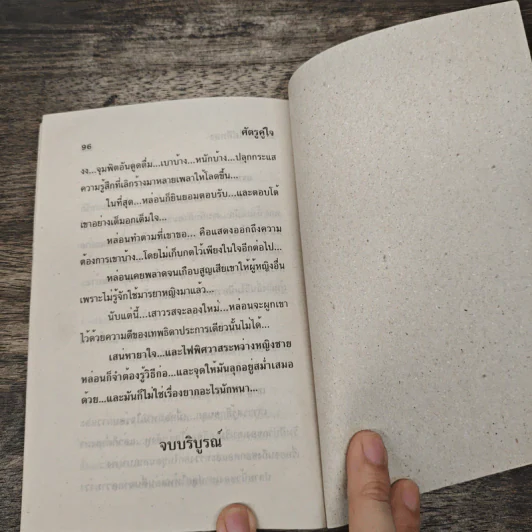 ๑๖
ศัตรูคู่ใจ
งง...จุมพิตอันดูดดื่ม...เบาบ้าง...หนักบ้าง...ปลุกกระแส
ความรู้สึกที่เลิกร้างมาหลายเพลาให้โลดขึ้น...
ในที่สุด...หล่อนก็ยินยอมตอบรับ...และตอบได้
เขาอย่างเต็มอกเต็มใจ...
หล่อนทำตามที่เขาขอ... คือแสดงออกถึงความ
ต้องการเขาบ้าง...โดยไม่เก็บกดไว้เพียงในใจอีกต่อไป...
หล่อนเคยพลาดจนเกือบสูญเสียเขาให้ผู้หญิงอื่น
เพราะไม่รู้จักใช้มารยาหญิงมาแล้ว...
นับแต่นี้...เสาวรสจะลองใหม่...หล่อนจะผูกเขา
ไว้ด้วยความดีของเทพธิดาประการเดียวนั้นไม่ได้...
เสน่หายาใจ...และไฟพิศวาสระหว่างหญิงชาย
หล่อนก็จำต้องรู้วิธีก่อ...และจุดให้มันลุกอยู่สม่ำเสมอ
ด้วย...และมันก็ไม่ใช่เรื่องยากอะไรนักหนา...
จบบริบูรณ์